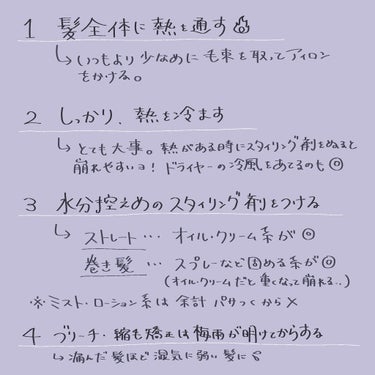 1 髪全体に熱を通す
↳いつもより少なめに毛束を取ってアイロン
をかける。
2 しっかり、熱を冷ます
↳とても大事。熱がある時にスタイリング剤をぬると
崩れやすいョ！ドライヤーの冷風をあてるのも◎
3 水分控えめのスタイリング剤をつける
↳ストレート… オイル・クリーム系が◎
巻き髪 … スプレーなど固める系が◎
(オイル・クリームだと重くなって崩れる..)
※ミスト・ローション系は余計パサつくから×
4 ブリーチ・縮も矯正は梅雨が明けてからする
↳痛んだ髪ほど湿気に弱い髪に